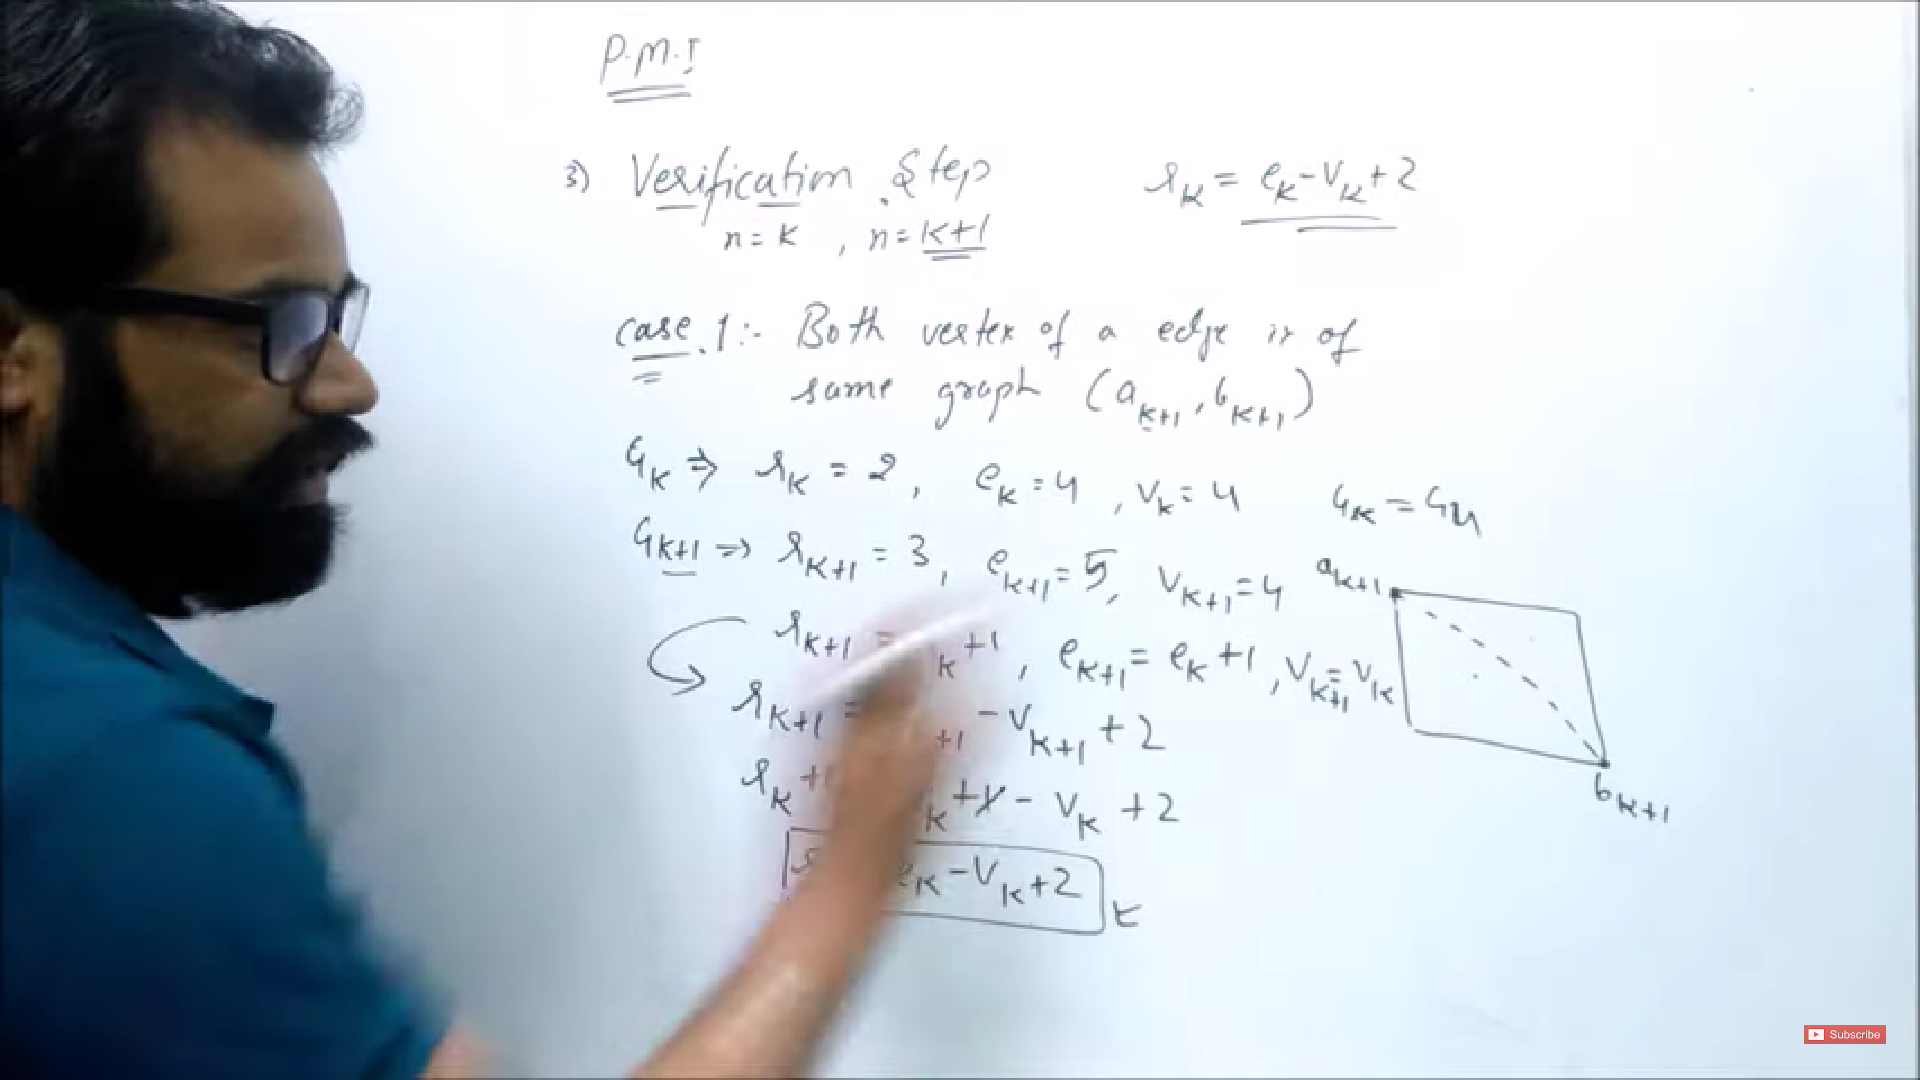 P.M.I
3) Verification Step
n = k , n = k+1
r_k = e_k - v_k + 2
case.1:- Both vertex of a edge is of
same graph (a_k+1, b_k+1)
G_k ⇒ r_k = 2, e_k = 4, v_k = 4
G_k = G_4
G_k+1 ⇒ r_k+1 = 3, e_k+1 = 5, v_k+1 = 4
a_k+1
r_k+1 = k +1, e_k+1 = e_k +1, v_k+1 = v_k
r_k+1 = +1 - v_k+1 + 2
b_k+1
r_k + k + 1 - v_k + 2
e_k - v_k + 2
Subscribe